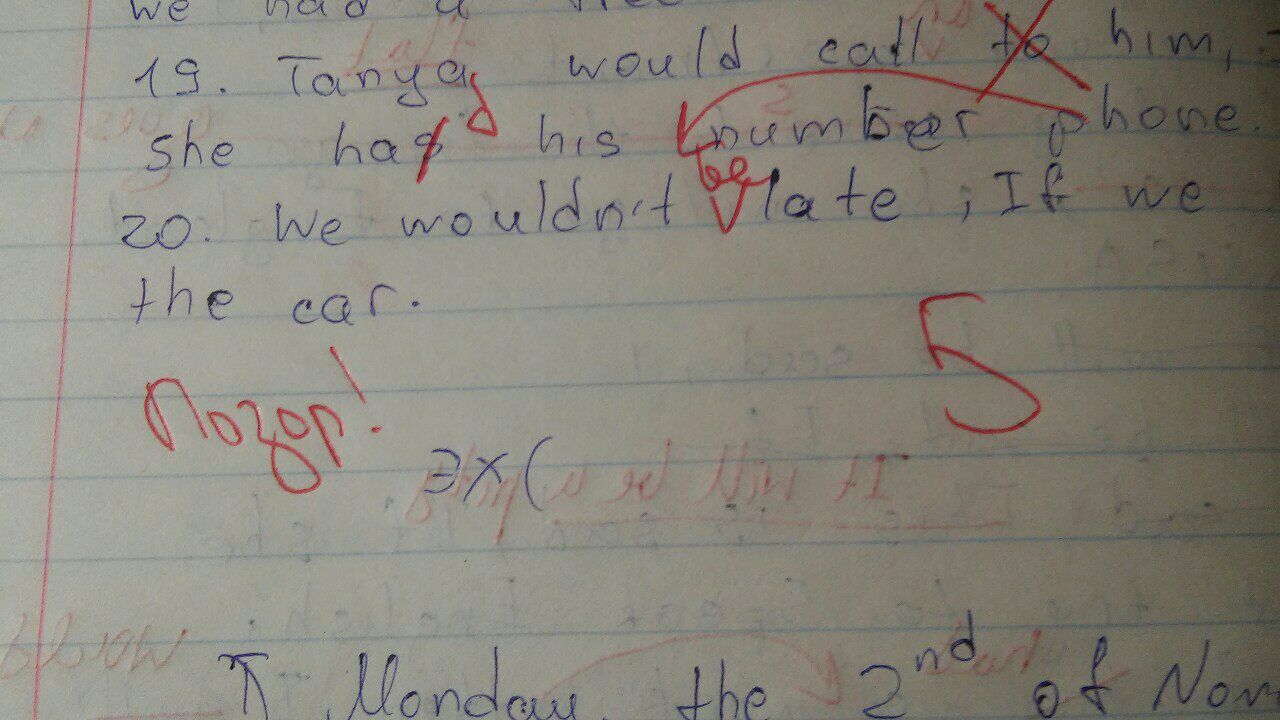 we had a
19. Tanya would call to him,
she has d his number phone.
be
20. We wouldn't late, If we
the car.
Позор! 5
Эх(
Monday, the 2nd of Nom